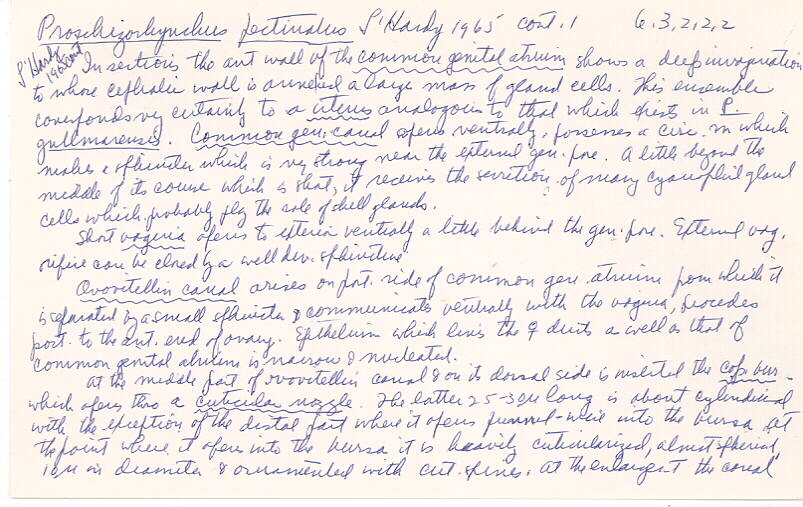 Proschizorhynchus pectinatus L'Hardy 1965 cont. 1 6.3,2,2,2
L'Hardy 1965 cont
In sections the ant wall of the common genital atrium shows a deep invagination
to whose cephalic wall is annexed a large mass of gland cells. This ensemble
corresponds very certainly to a uterus analogous to that which exists in P.
gullmarensis. Common gen. canal opens ventrally, possesses a circ. m which
makes a sphincter which is very strong near the external gen. pore. A little beyond the
middle of its course which is short, it receives the secretion of many cyanophil gland
cells which probably play the role of shell glands.
Short vagina opens to exterior ventrally a little behind the gen. pore. External vag.
orifice can be closed by a well dev. sphincter.
Ovovitellin canal arises on post. side of common gen. atrium from which it
is separated by a small sphincter & communicates ventrally with the vagina, proceeds
post. to the ant. end of ovary. Epithelium which lines the ♀ ducts as well as that of
common genital atrium is narrow & nucleated.
At the middle part of ovovitellin canal & on its dorsal side is inserted the cop. bur.
which opens thro a cuticular nozzle. The latter 25-30µ long is about cylindrical
with the exception of the distal part where it opens funnel-wise into the bursa. At
the point where it opens into the bursa it is heavily cuticularized, almost spherical,
in diameter & ornamented with cut. spines. At the enlargent the canal